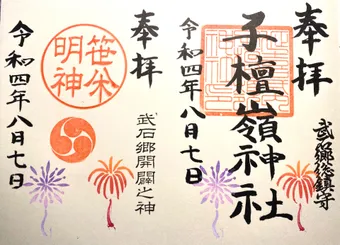 奉拝
武石郷総鎮守
子檀嶺神社
令和四年八月七日
奉拝
武石郷開闢之神
笹米
明神
令和四年八月七日